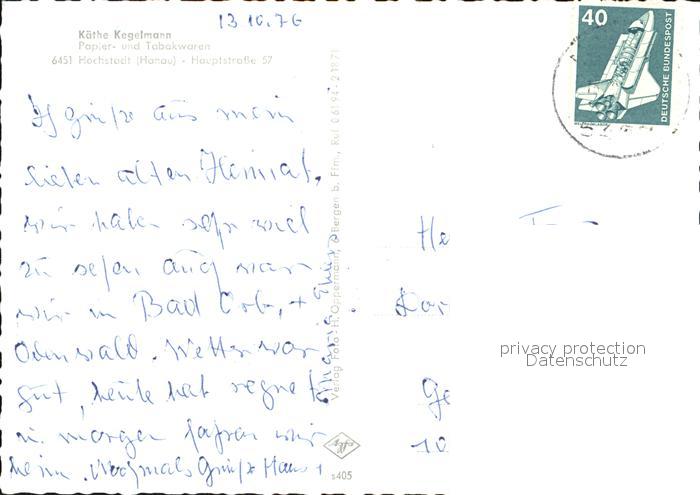 13.10.76
Käthe Kegelmann
Papier- und Tabakwaren
6451 Hochstadt (Hanau) - Hauptstraße 57
40
DEUTSCHE BUNDESPOST
Grüße aus mein
lieben alten Heimat,
wir haben sehr viel
zu sehen auch waren
wir in Bad Orb, +
Odenwald. Wetter war
gut, heute hat regnet
u. morgen fahren wir
heim. Nochmals Grüße Hans +
Verlag Foto-H. Oppermann, Bergen b. Ffm., Ruf 06194-21871
He
Ge
10
privacy protection
Datenschutz
s405